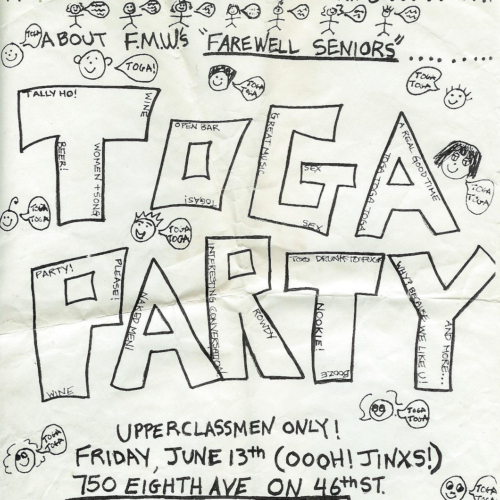 ABOUT F.M.W.'s "FAREWELL SENIORS"..........
TOGA
TOGA!
TOGA
TOGA
TOGA
TOGA
TOGA
TALLY HO!
WINE
BEER!
WOMEN + SONG
OPEN BAR
TOGAS!
GREAT MUSIC
SEX
SEX
A REAL GOOD TIME
TOGA TOGA TOGA
TOGA
TOGA
TOGA
TOGA
TOGA
TOGA
TOGA
PARTY!
PLEASE!
WINE
NAKED MEN!
INTERESTING CONVERSATION!
ROWDY
TOO DRUNK TO FUCK
NOOKIE!
BOOZE
WHY? BECAUSE WE LIKE U!
AND MORE...
PARTY
TOGA
TOGA
TOGA
TOGA
UPPERCLASSMEN ONLY!
FRIDAY, JUNE 13th (OOOH! JINXS!)
750 EIGHTH AVE ON 46th ST.
TOGA
TOGA